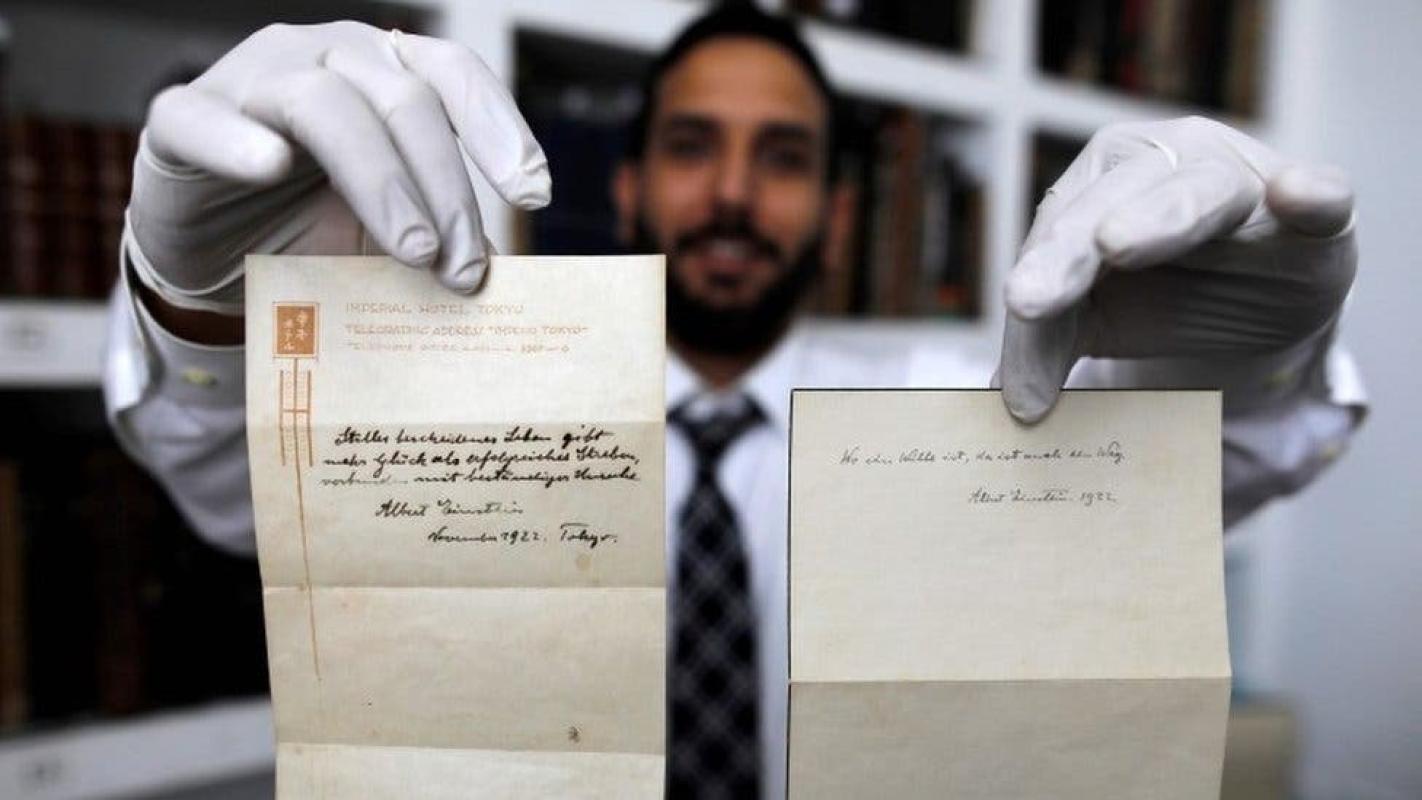 ホテル
IMPERIAL HOTEL TOKYO
TELEGRAPHIC ADDRESS "IMPEHO TOKYO"
Stilles bescheidenes Leben gibt
mehr Glück als erfolgreiches Streben,
verbunden mit beständiger Unruhe.
Albert Einstein
November 1922. Tokyo.
Wo ein Wille ist, da ist auch ein Weg.
Albert Einstein. 1922.